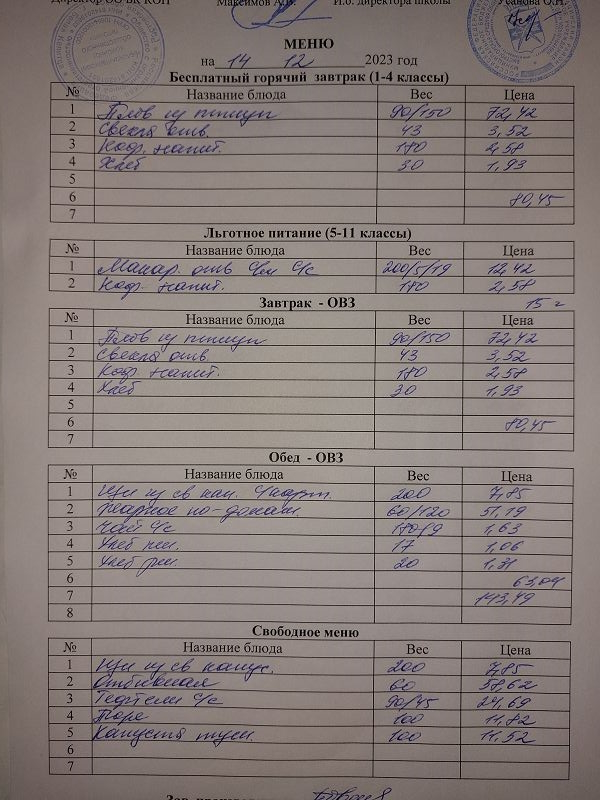 Директор ОО ВК КОП Максимов А.В. И.о. директора школы Усанова О.Н.
МЕНЮ
на 14 12 2023 год
Бесплатный горячий завтрак (1-4 классы)
№ Название блюда Вес Цена
1 Плов из птицы 90/150 72,42
2 Свекла отв. 43 3,52
3 Коф. напит. 180 2,58
4 Хлеб 30 1,93
5
6 80,45
7
Льготное питание (5-11 классы)
№ Название блюда Вес Цена
1 Макар. отв С/м С/с 200/5/19 12,42
2 Коф. напит. 180 2,58
15
Завтрак - ОВЗ
№ Название блюда Вес Цена
1 Плов из птицы 90/150 72,42
2 Свекла отв 43 3,52
3 Коф. напит. 180 2,58
4 Хлеб 30 1,93
5
6 80,45
7
Обед - ОВЗ
№ Название блюда Вес Цена
1 Щи из св кап. С/карт. 200 7,85
2 Жаркое по-домаш. 60/120 51,19
3 Чай С/с 180/9 1,63
4 Хлеб пш. 17 1,06
5 Хлеб рж. 20 1,31
6 63,04
7 143,49
8
Свободное меню
№ Название блюда Вес Цена
1 Щи из св капус. 200 7,85
2 Отбивная 60 58,62
3 Тефтели С/с 90/45 24,69
4 Пюре 100 11,82
5 Капуста туш. 100 11,52
6
7